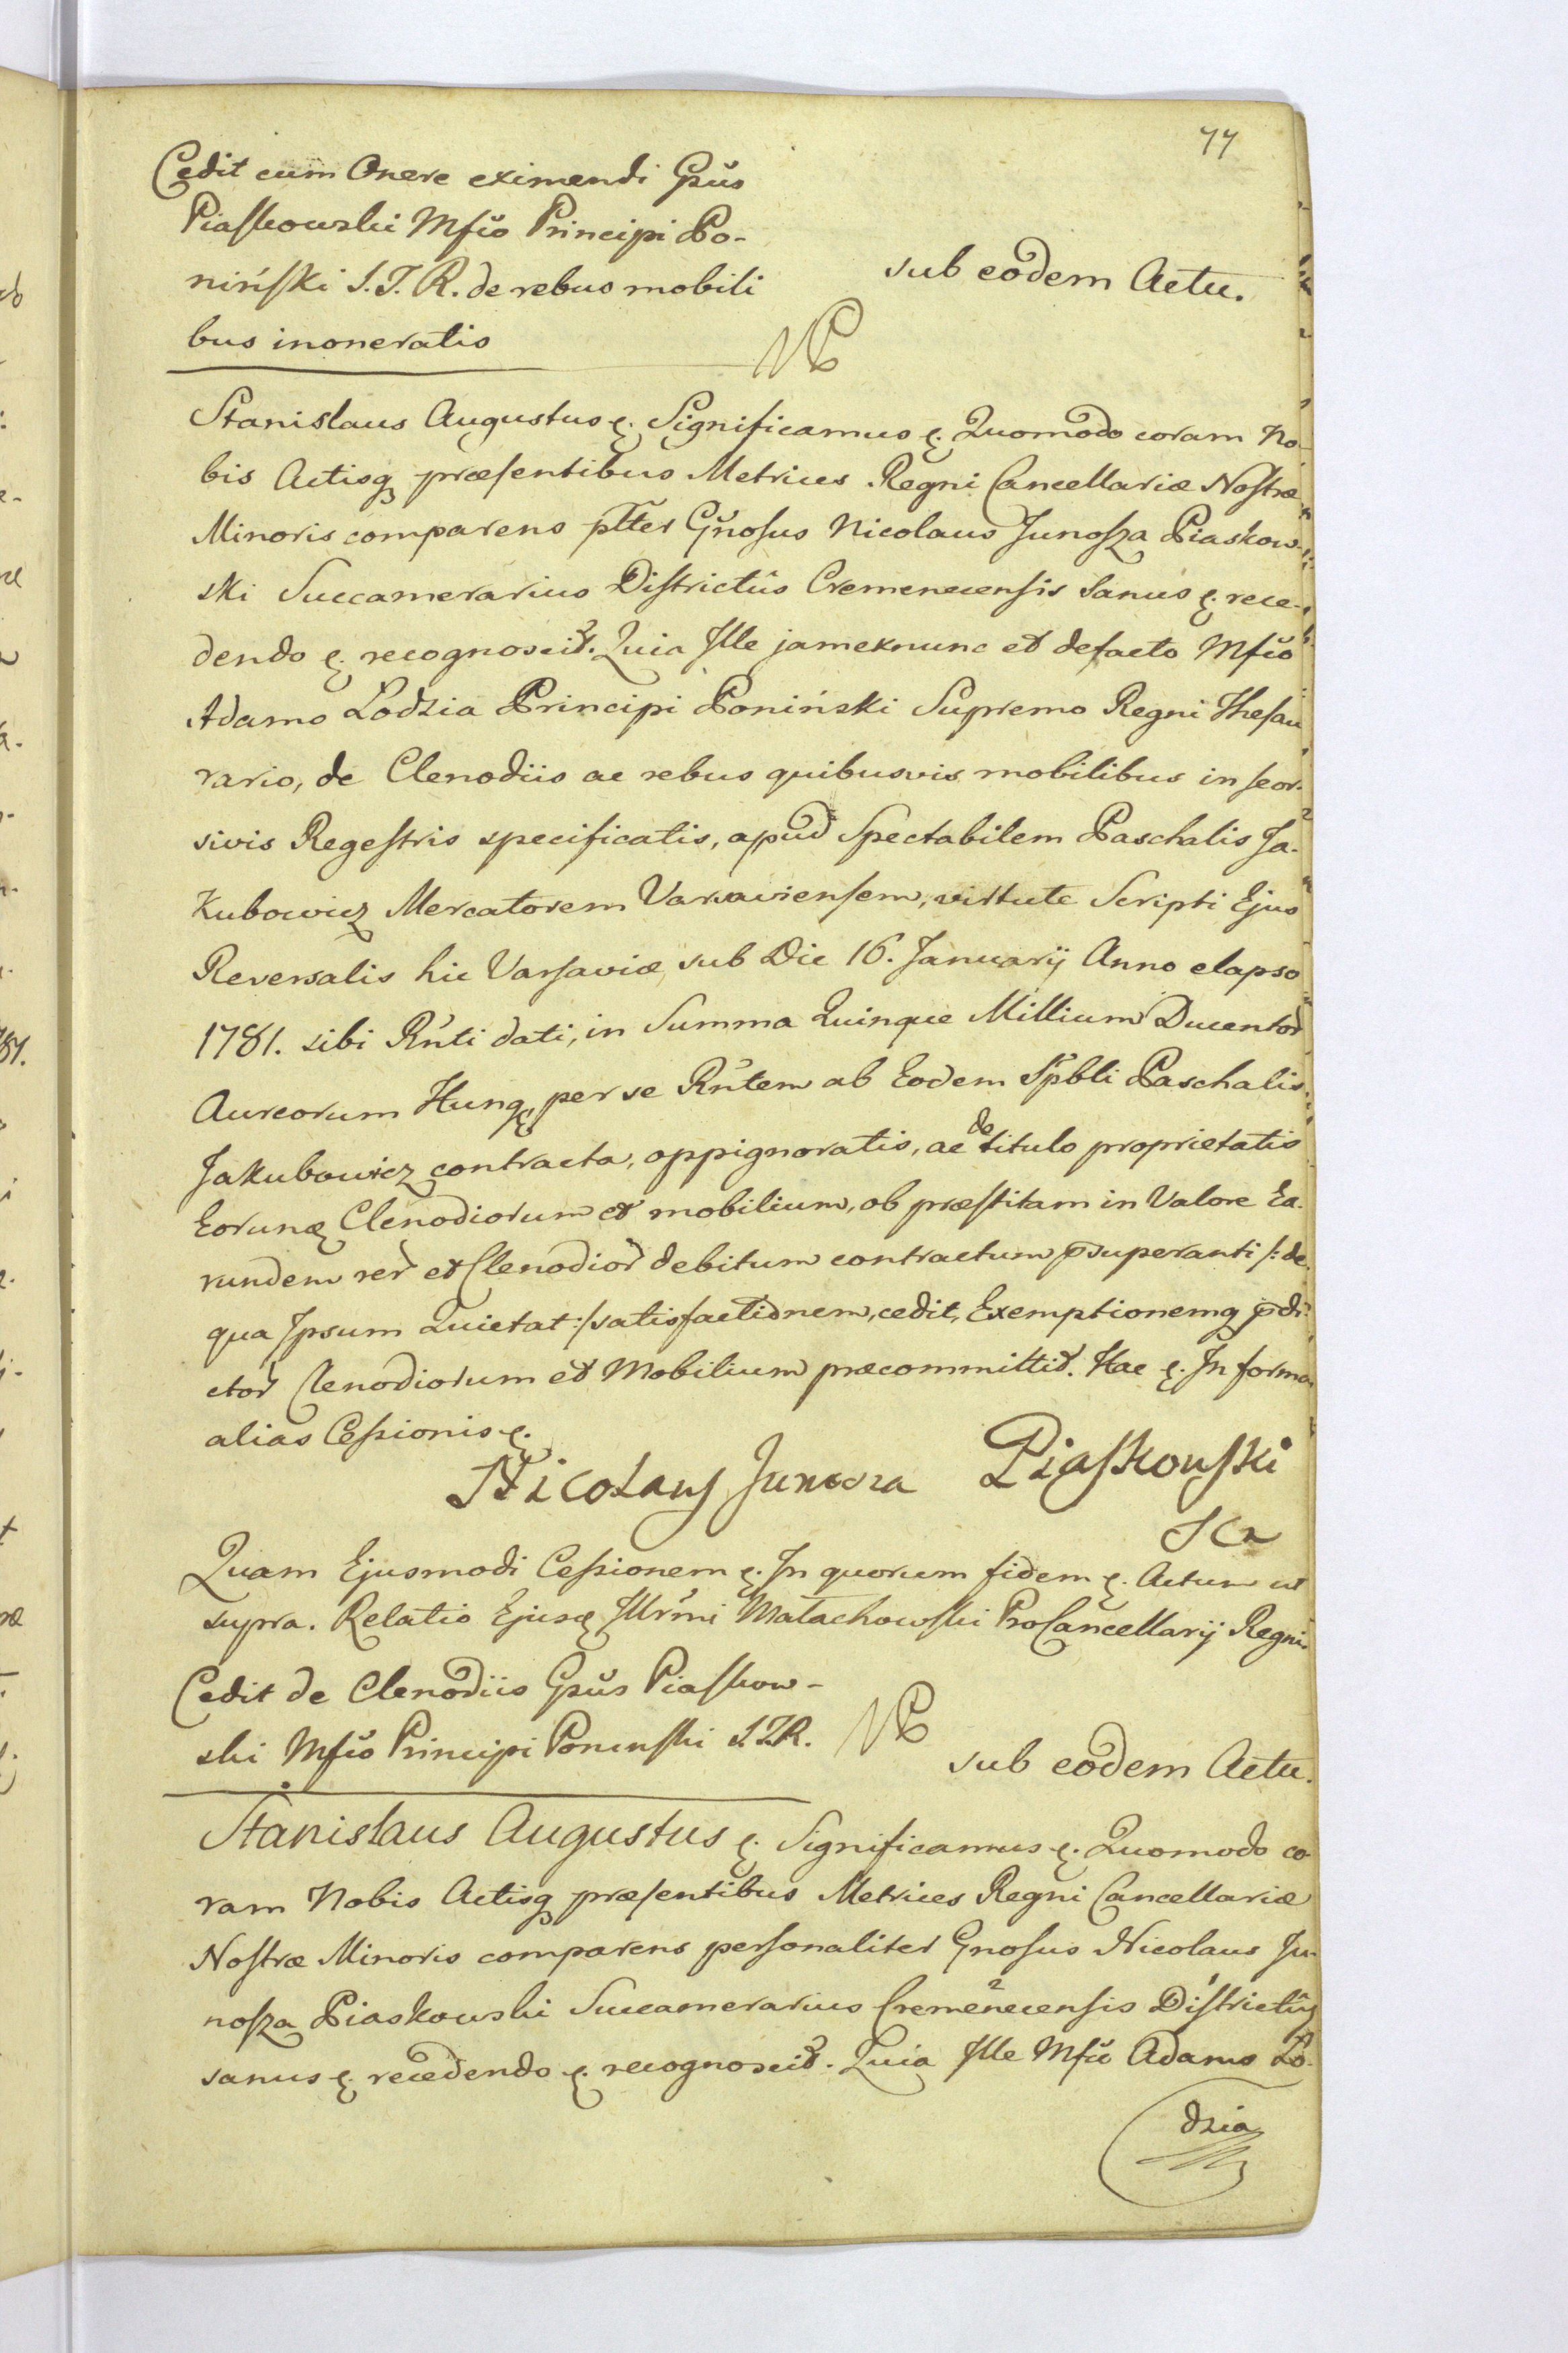 77
Cedit cum Onere eximendi Gsūs
Piaskowski Mfco Principi Po-
niński S. T. R. de rebus mobili
bus inoneratis
sub eodem Actu.
NP
Stanislaus Augustus ꝛ. Significamus ꝛ. Quomodo coram No-
bis Actisq præsentibus Metrices Regni Cancellariæ Nostræ
Minoris comparens plter Gnosus Nicolaus Junosza Piaskow-
ski Succamerarius Districtûs Cremenecensis sanus ꝛ. rece-
dendo ꝛ. recognoscit. Quia Ille jamexnunc et defacto Mfco
Adamo Lodzia Principi Poniński Supremo Regni Thesau
rario, de Clenodiis ac rebus quibusvis mobilibus in seor-
sivis Regestris specificatis, apud Spectabilem Paschalis Ja-
kubowicz Mercatorem Varsaviensem, virtute Scripti Ejus
Reversalis hic Varsaviæ sub Die 16. Januarij Anno elapso
1781. sibi Rnti dati, in Summa Quinque Millium Ducentor
Aureorum Hung, per se Rntem ab Eodem Spbli Paschalis
Jakubowicz contracta, oppignoratis, ac de titulo proprietatis
Eorunq Clenodiorum et mobilium, ob præstitam in Valore Ea-
rundem rer et Clenodior debitum contractum p̄superanti /: de
qua Ipsum Quietat :/ satisfactionem, cedit, Exemptionemq p̄di-
ctor Clenodiorum et Mobilium præcommittit. Hac ꝛ. In forma
alias Cessionis ꝛ.
Nicolaus Junosza Piaskowski
Quam Ejusmodi Cessionem ꝛ. In quorum fidem ꝛ. Actum ut
supra. Relatio Ejusq Illrmi Małachowski ProCancellarij Regni
Cedit de Clenodiis Gsūs Piaskow-
ski Mfco Principi Poninski S. T. R.
NP
sub eodem Actu.
Stanislaus Augustus ꝛ. Significamus ꝛ. Quomodo co-
ram Nobis Actisq præsentibus Metrices Regni Cancellariæ
Nostræ Minoris comparens personaliter Gnosus Nicolaus Ju-
nosza Piaskowski Succamerarius Cremenecensis Districtûs
sanus ꝛ. recedendo ꝛ. recognoscit. Quia Ille Mfco Adamo Lo-
dzia